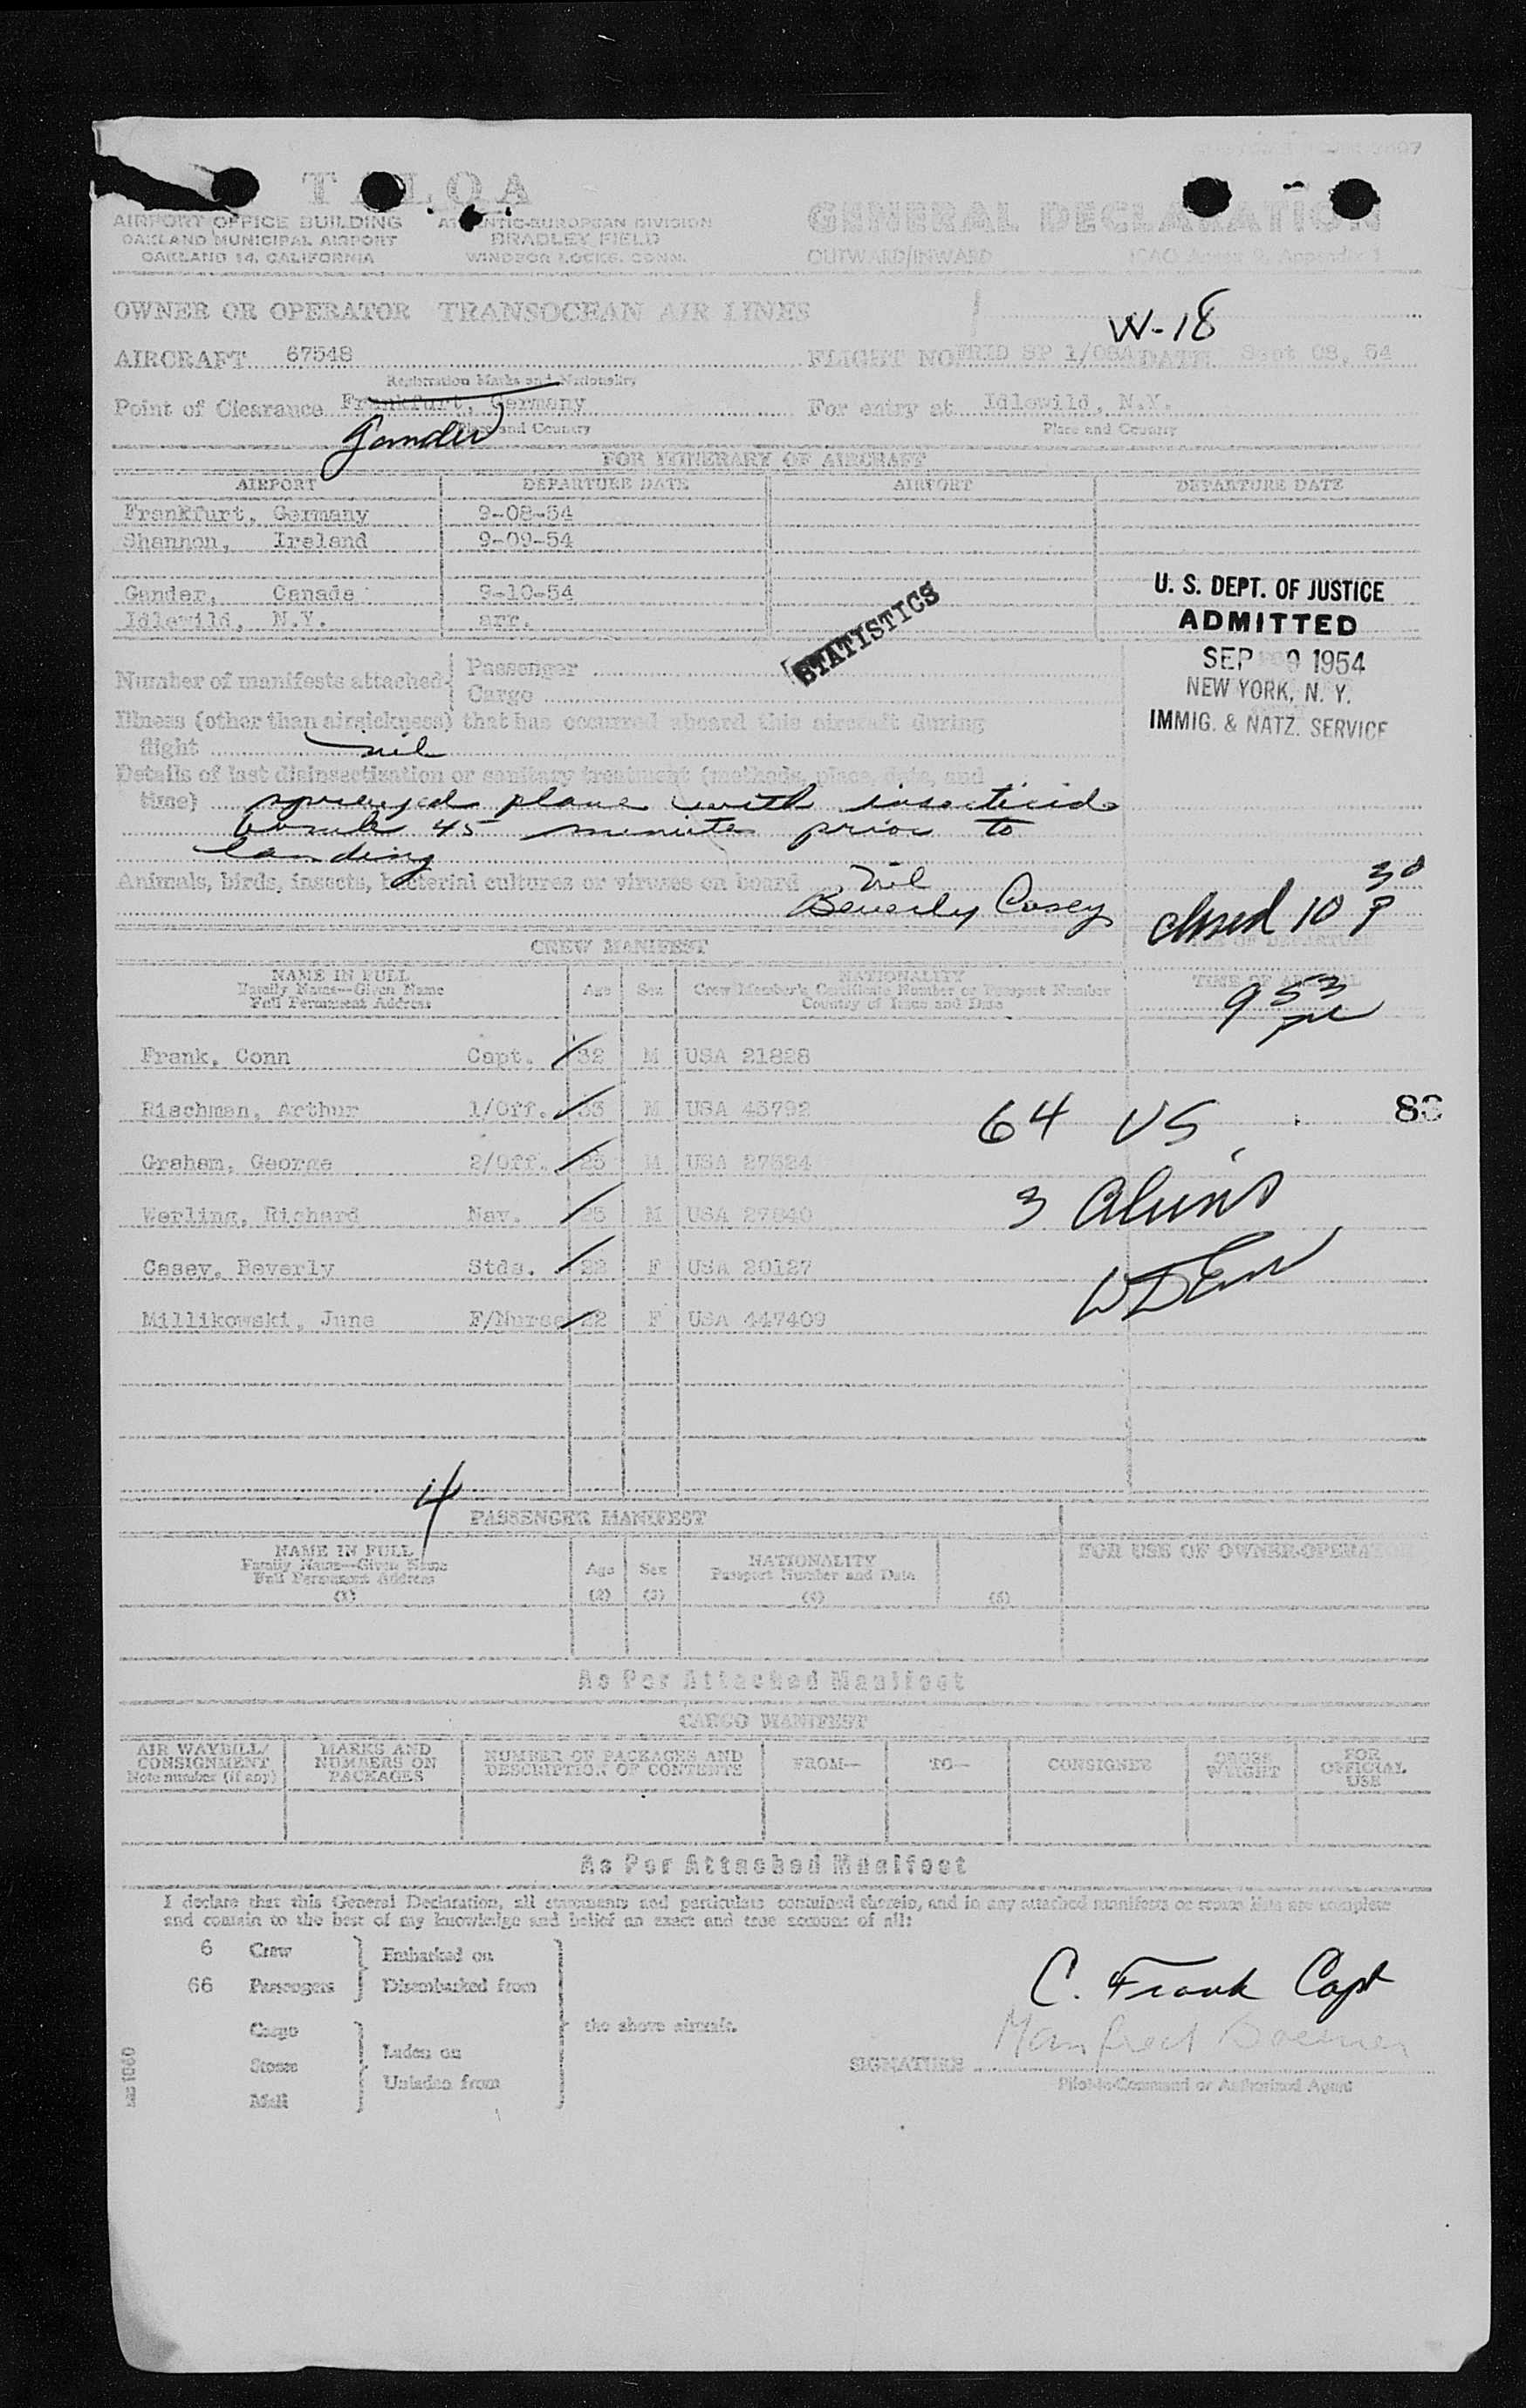 AIRPORT OFFICE BUILDING
OAKLAND MUNICIPAL AIRPORT
OAKLAND 14, CALIFORNIA
ATLANTIC-EUROPEAN DIVISION
BRADLEY FIELD
WINDSOR LOCKS, CONN.
GENERAL DECLARATION
OUTWARD/INWARD
ICAO Annex 9, Appendix 1
OWNER OR OPERATOR TRANSOCEAN AIR LINES
W-18
AIRCRAFT 67548
Registration Marks and Nationality
FLIGHT NO SP 1/08A DATE Sept 08, 54
Point of Clearance Frankfurt, Germany
Gander
Place and Country
For entry at Idlewild, N.Y.
Place and Country
FOR ITINERARY OF AIRCRAFT
AIRPORT DEPARTURE DATE AIRPORT DEPARTURE DATE
Frankfurt, Germany 9-08-54
Shannon, Ireland 9-09-54
Gander, Canada 9-10-54
Idlewild, N.Y. arr.
STATISTICS
U. S. DEPT. OF JUSTICE
ADMITTED
SEP 9 1954
NEW YORK, N. Y.
IMMIG. & NATZ. SERVICE
Number of manifests attached
Passenger
Cargo
Illness (other than airsickness) that has occurred aboard this aircraft during
flight nil
Details of last disinsectization or sanitary treatment (methods, place, date, and
time) sprayed plane with insecticide
bomb 45 minutes prior to
landing
Animals, birds, insects, bacterial cultures or viruses on board nil
Beverly Casey
closed 10 30 P
CREW MANIFEST
TIME OF DEPARTURE
NAME IN FULL
Family Name—Given Name
Full Permanent Address
Age Sex
NATIONALITY
Crew Member's Certificate Number or Passport Number
Country of Issue and Date
TIME OF ARRIVAL
9 53
Frank, Conn Capt. 32 M USA 21828
Rischman, Arthur 1/Off. 33 M USA 45792
64 US
Graham, George 2/Off. 25 M USA 27524
3 Aliens
Werling, Richard Nav. 25 M USA 27840
Casey, Beverly Stds. 22 F USA 20127
Millikowski, June F/Nurse 22 F USA 447409
4
PASSENGER MANIFEST
NAME IN FULL
Family Name—Given Name
Full Permanent Address
(1)
Age
(2)
Sex
(3)
NATIONALITY
Passport Number and Date
(4)
(5)
FOR USE OF OWNER-OPERATOR
As Per Attached Manifest
CARGO MANIFEST
AIR WAYBILL/
CONSIGNMENT
Note number (if any)
MARKS AND
NUMBERS ON
PACKAGES
NUMBER OF PACKAGES AND
DESCRIPTION OF CONTENTS
FROM—
TO—
CONSIGNEE
GROSS
WEIGHT
FOR
OFFICIAL
USE
As Per Attached Manifest
I declare that this General Declaration, all statements and particulars contained therein, and in any attached manifests or stores lists are complete
and contain to the best of my knowledge and belief an exact and true account of all:
6 Crew
66 Passengers
Embarked on
Disembarked from
Cargo
Stores
Mail
Laden on
Unladen from
the above aircraft.
C. Frank Capt
SIGNATURE Manfred
Pilot-in-Command or Authorized Agent